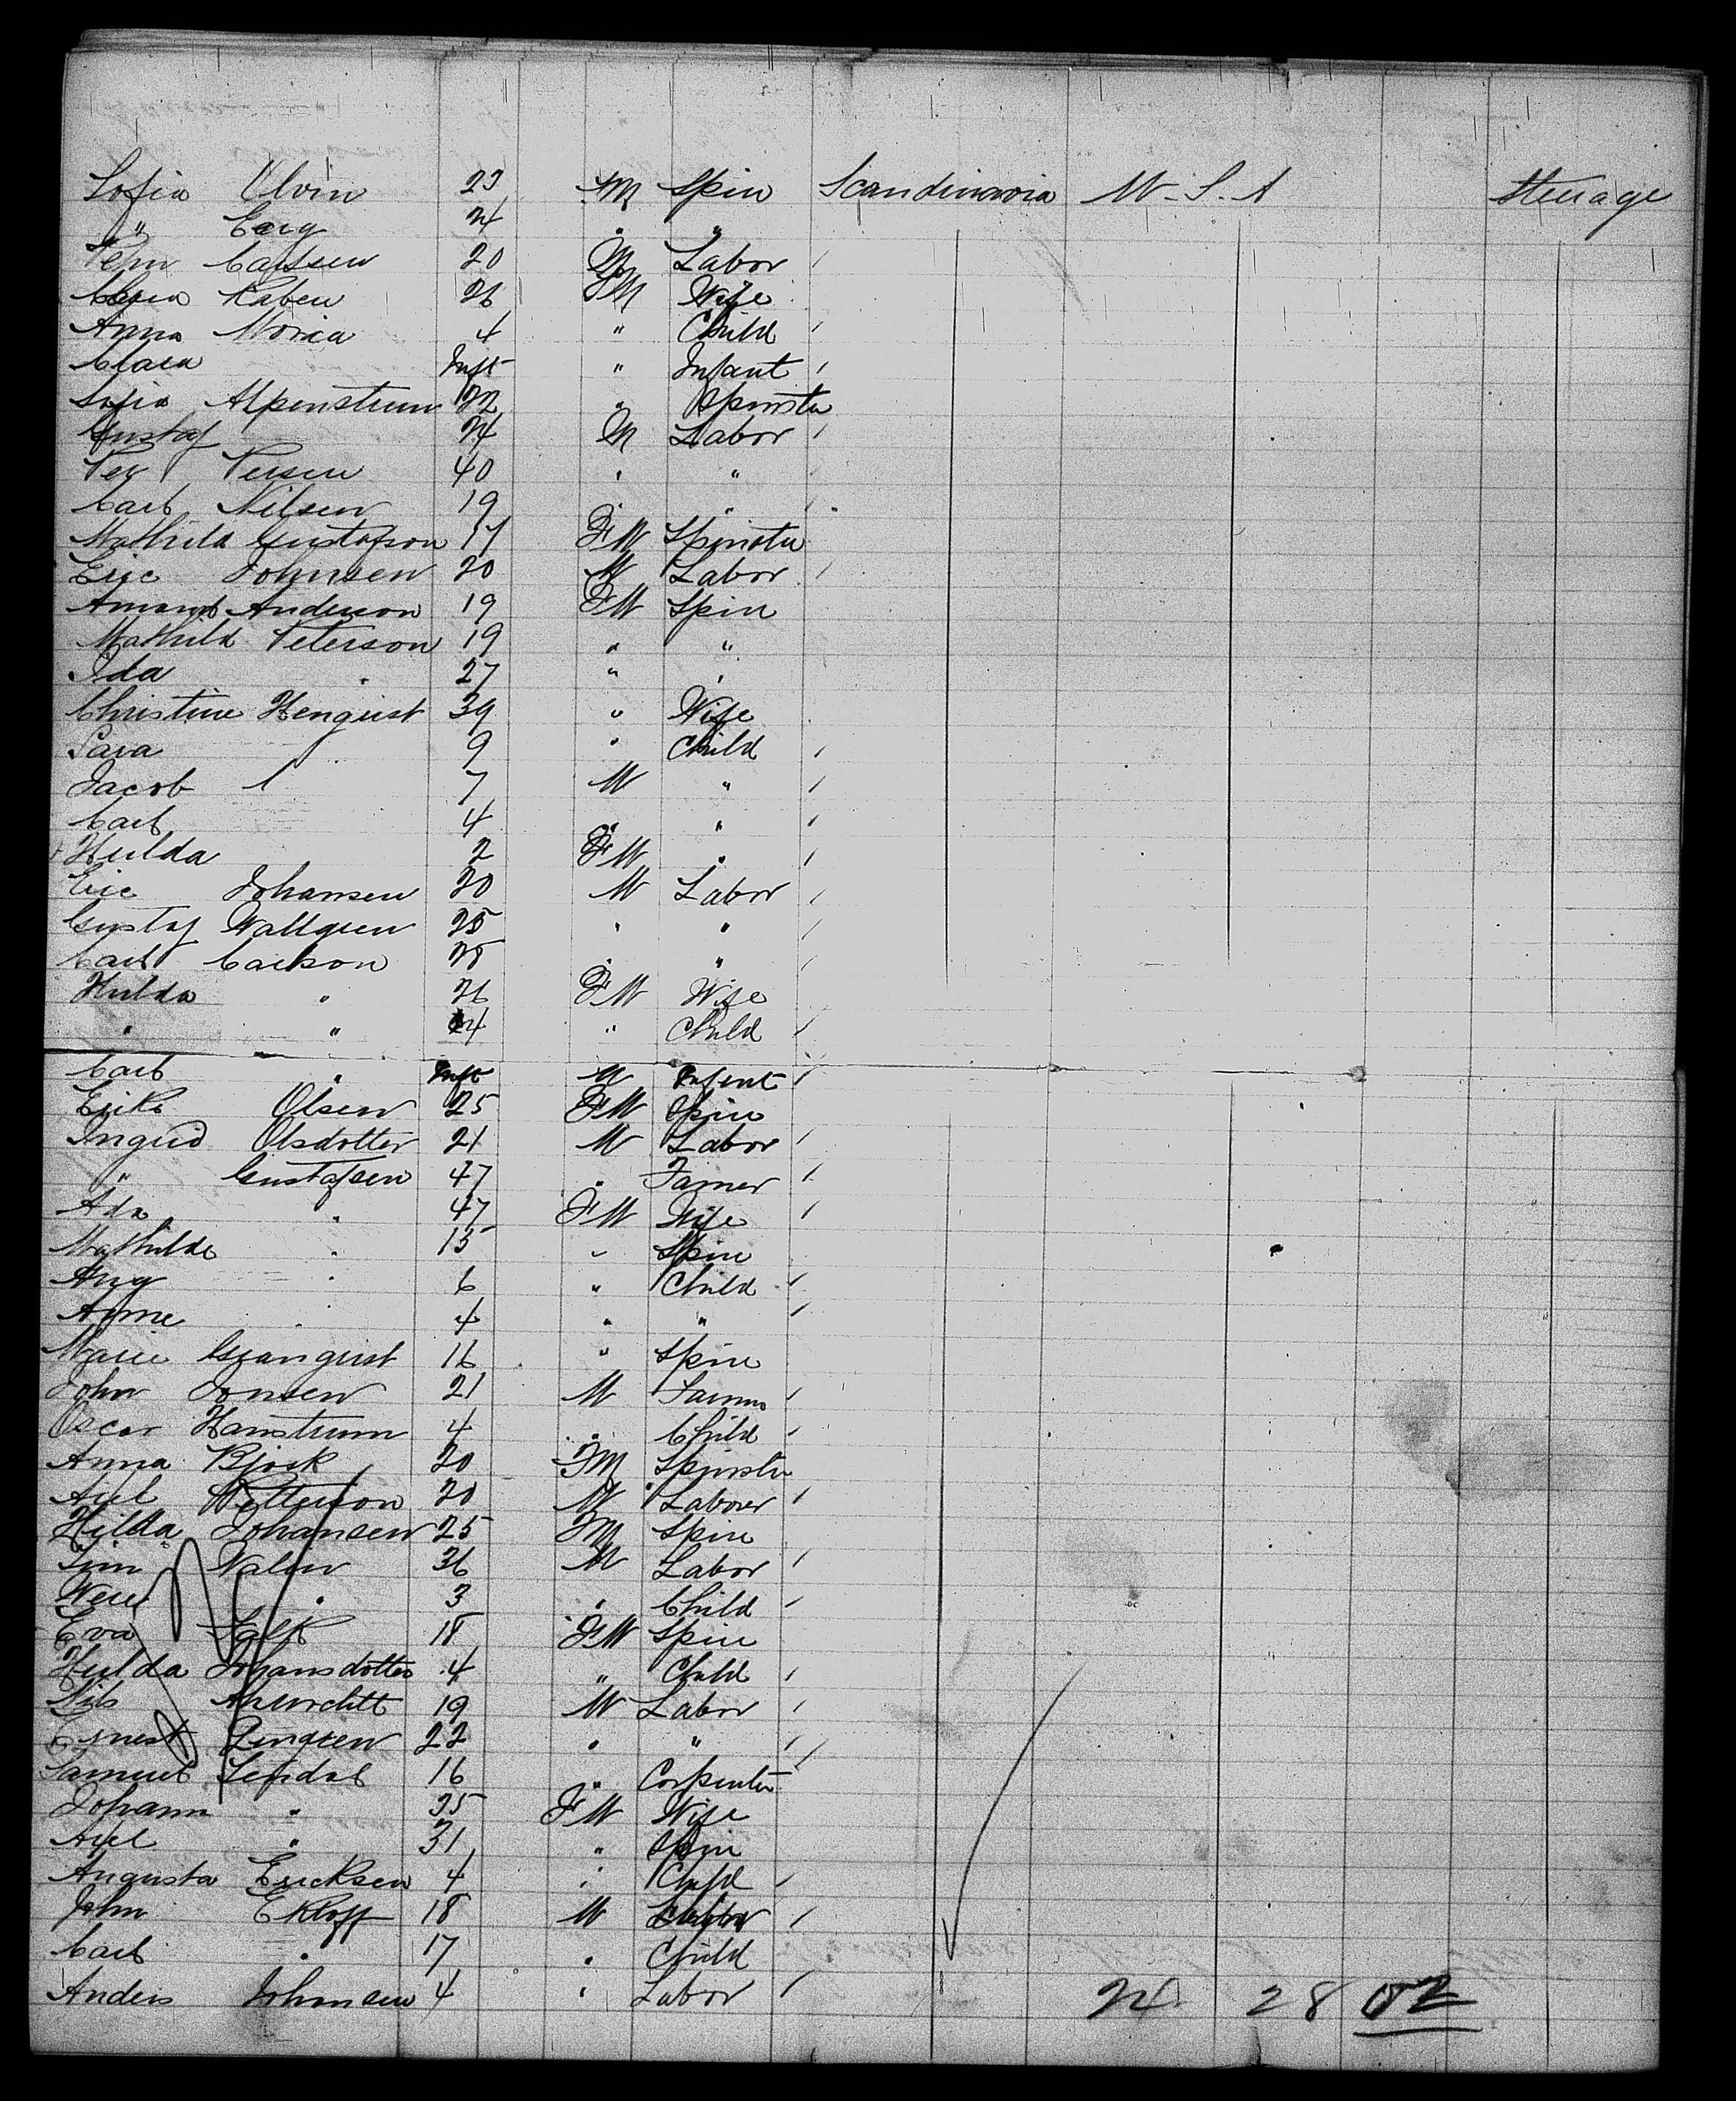 Sofia Ulvin 23 FM Spin Scandinavia U.S.A Steerage
" Berg 24 " "
Pehr Carlsen 20 M Labor
Raben 26 FM Wife
Anna Maria 4 " Child
Clara Inft " Infant
Sofia Alpenstrum 22 " Spinster
Gustaf 24 M Labor
Per Persen 40 " "
Carl Nilsen 19 " "
Mathild Gustafson 17 FM Spinster
Eric Johnsen 20 M Labor
Amand Anderson 19 FM Spin
Mathild Peterson 19 " "
Ida " 27 " "
Christine Henquist 39 " Wife
Sara 9 " Child
Jacob 7 M "
Carl 4 " "
Hulda 2 FM "
Eric Johansen 20 M Labor
Gustaf Wallgren 25 " "
Carl Carlson 28 " "
Hulda " 26 FM Wife
" " 4 " Child
Carl " Inft M Infant
Erika Olsen 25 FM Spin
Ingrid Olsdotter 21 M Labor
" Gustafsen 47 " Farmer
Ada " 47 FM Wife
Mathilde " 15 " Spin
Aug " 6 " Child
Anne " 4 " "
Marie Granquist 16 " Spin
John Jonsen 21 M Farmer
Oscar Hanstrum 4 " Child
Anna Bjork 20 FM Spinster
Axel Petterson 20 M Laborer
Hilda Johansen 25 FM Spin
Walin 36 M Labor
" 3 " Child
Eva Falk 18 FM Spin
Hulda Johansdotter 4 " Child
Nils 19 M Labor
Ernest Lingren 22 " "
Samuel Lendal 16 " Carpenter
Johann " 35 FM Wife
Axel " 31 " Spin
Augusta Ericksen 4 " Child
John Ekloff 18 M Labor
Carl " 17 " Child
Anders Johansen 4 " Labor 24 28 02